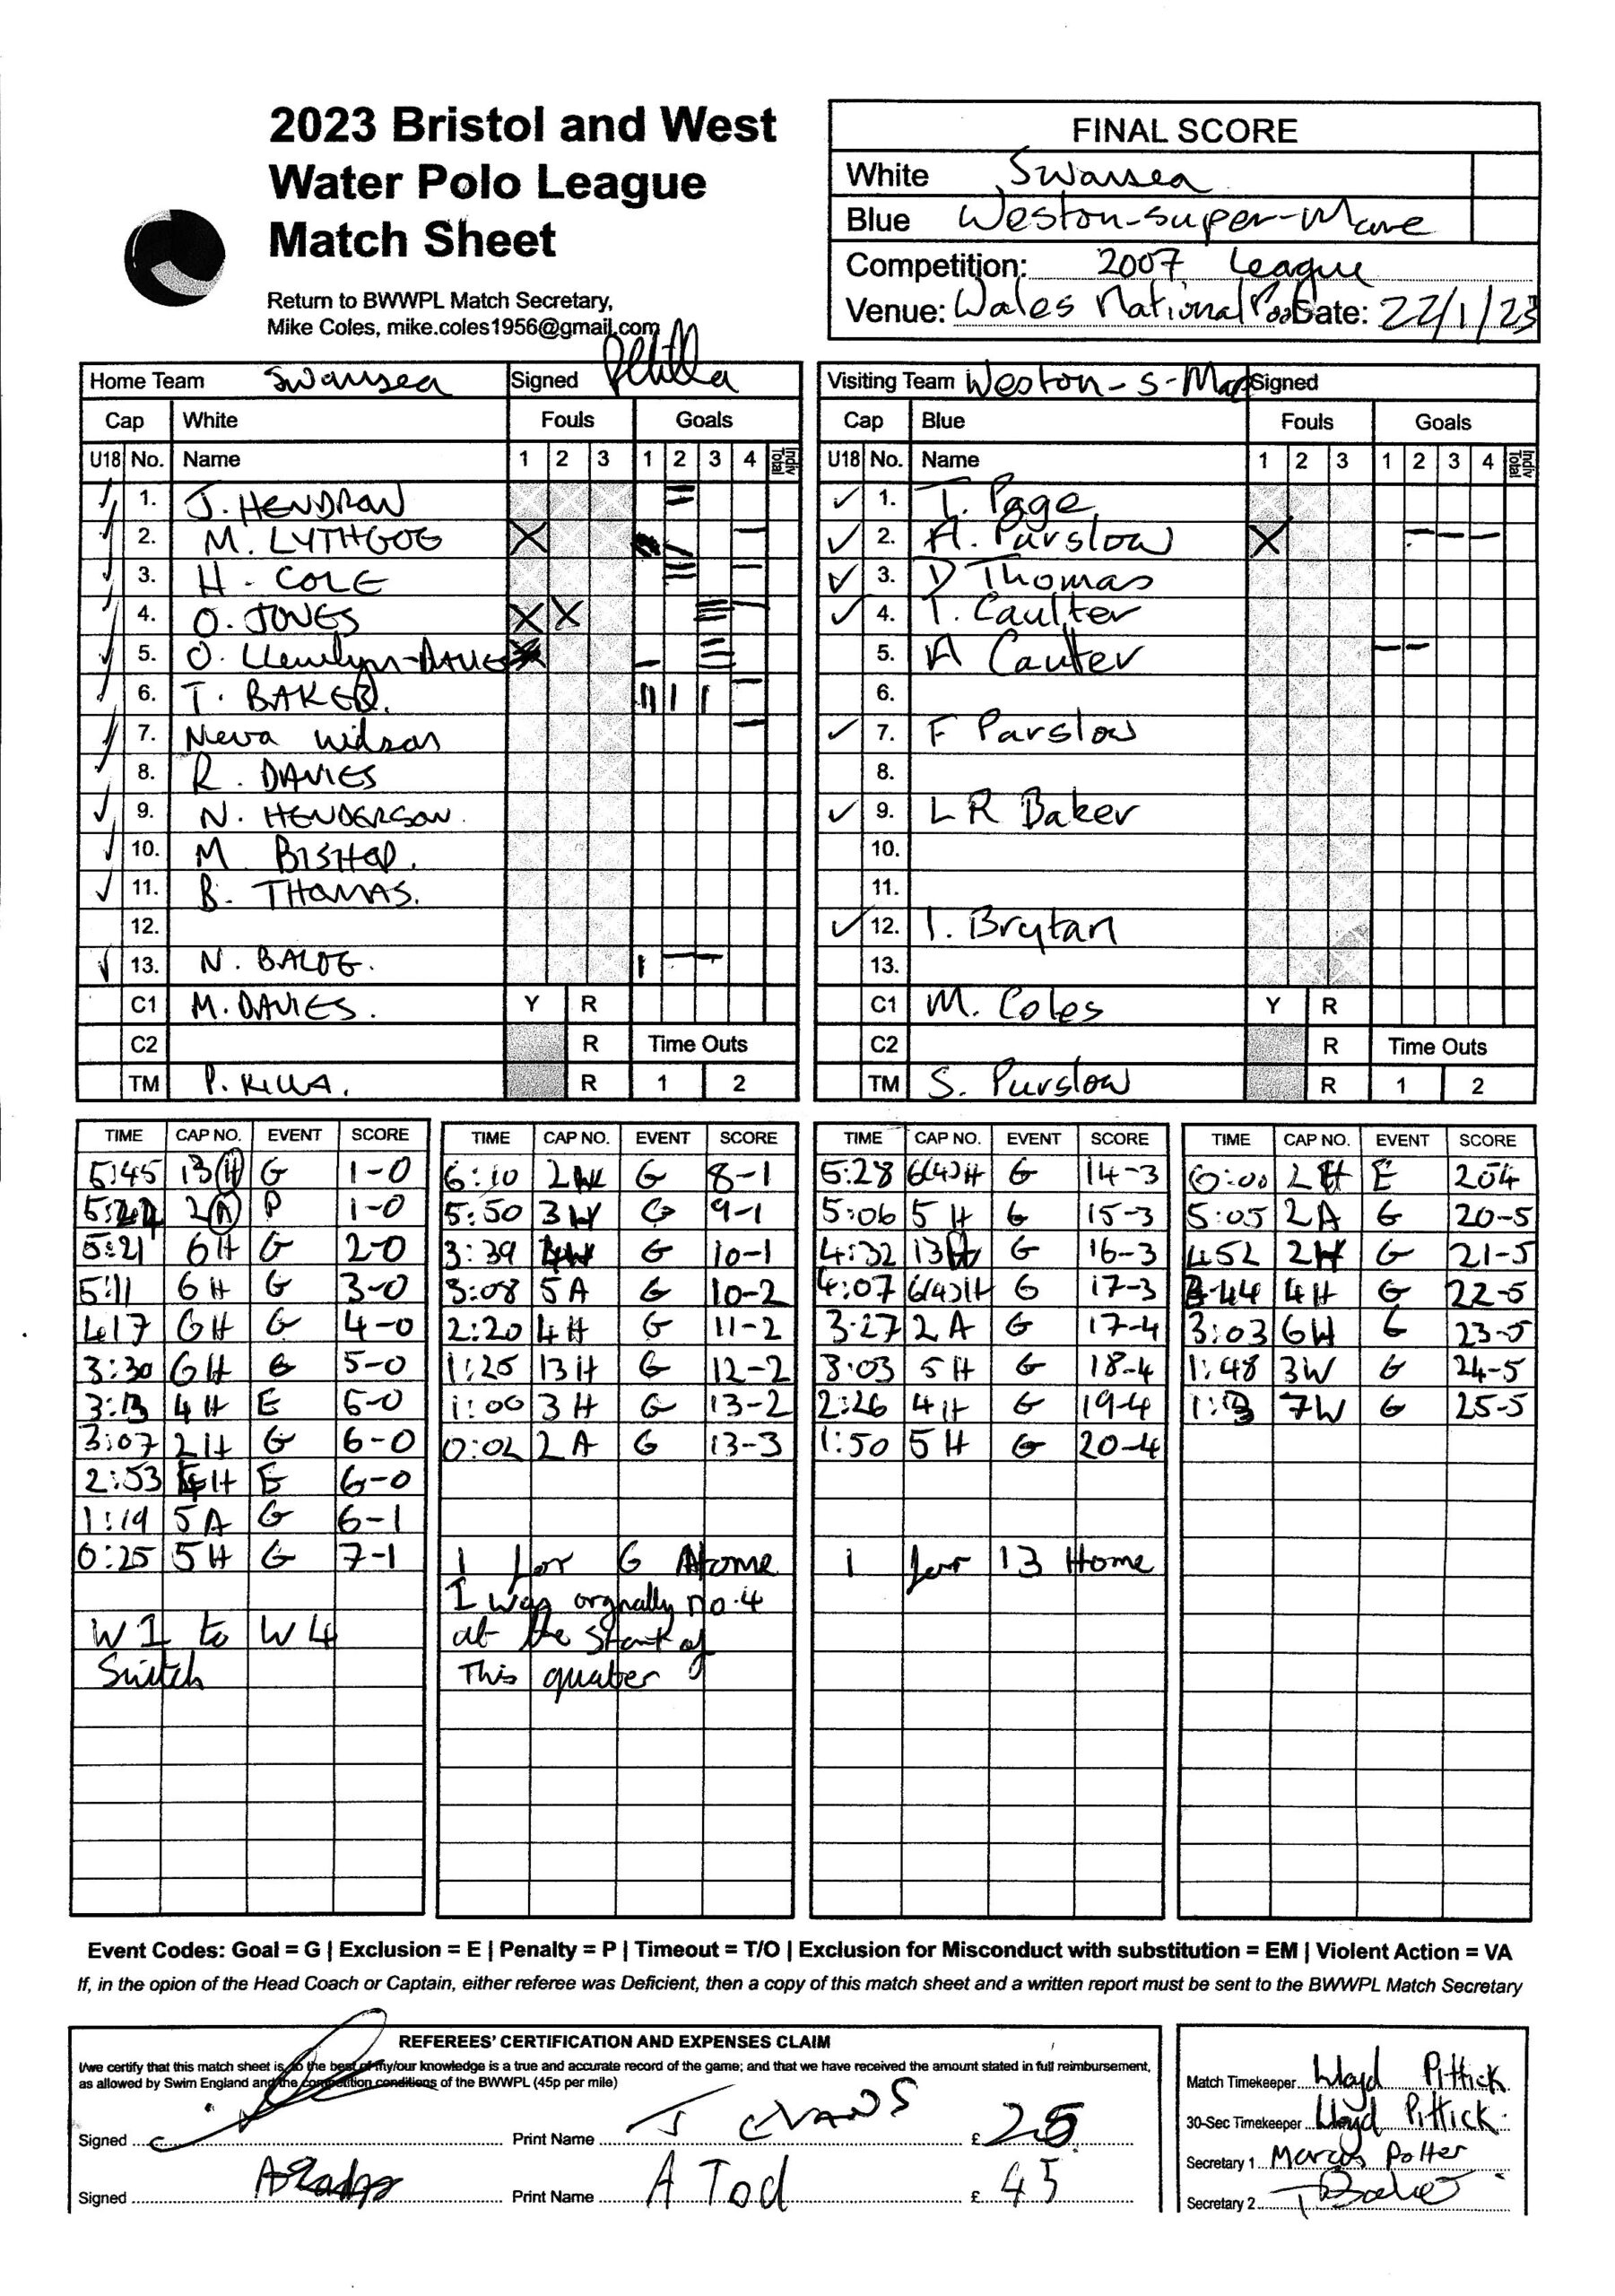 2023 Bristol and West
Water Polo League
Match Sheet
Return to BWWPL Match Secretary,
Mike Coles, mike.coles1956@gmail.com
FINAL SCORE
White Swansea
Blue Weston-super-Mare
Competition: 2007 League
Venue: Wales National Pool Date: 22/1/23
Home Team Swansea Signed
Cap White Fouls Goals
U18 No. Name 1 2 3 1 2 3 4 Indiv Total
1. J. HENDRON
2. M. LYTHGOG X
3. H - COLE
4. O. JONES X X
5. O. Llewelyn-DAVIES
6. T. BAKER.
7. Neva Wilson
8. R. DAVIES
9. N. HENDERSON.
10. M BISHOP.
11. B. THOMAS.
12.
13. N. BALOG.
C1 M. DAVIES. Y R
C2 R Time Outs
TM P. KILLA. R 1 2
Visiting Team Weston-S-Mare Signed
Cap Blue Fouls Goals
U18 No. Name 1 2 3 1 2 3 4 Indiv Total
1. T. Page
2. A. Purslow X
3. D Thomas
4. T. Caulter
5. A Cauter
6.
7. F Parslow
8.
9. L R Baker
10.
11.
12. I. Brytan
13.
C1 M. Coles Y R
C2 R Time Outs
TM S. Purslow R 1 2
TIME CAP NO. EVENT SCORE
5:45 13 H G 1-0
2 A P 1-0
5:21 6 H G 2-0
5:11 6 H G 3-0
4:17 6 H G 4-0
3:30 6 H G 5-0
3:13 4 H E 5-0
3:07 2 H G 6-0
2:53 H E 6-0
1:19 5 A G 6-1
0:25 5 H G 7-1
W 1 to W 4
Switch
TIME CAP NO. EVENT SCORE
6:10 2 W G 8-1
5:50 3 W G 9-1
3:39 G 10-1
3:08 5 A G 10-2
2:20 4 H G 11-2
1:25 13 H G 12-2
1:00 3 H G 13-2
0:02 2 A G 13-3
1 for 6 Home
1 was orgnally no.4
at the start of
This quater
TIME CAP NO. EVENT SCORE
5:28 6(4)H G 14-3
5:06 5 H G 15-3
4:32 13 H G 16-3
4:07 6(4)H G 17-3
3:27 2 A G 17-4
3:03 5 H G 18-4
2:26 4 H G 19-4
1:50 5 H G 20-4
1 for 13 Home
TIME CAP NO. EVENT SCORE
6:00 2 H E 204
5:05 2 A G 20-5
4:52 2 H G 21-5
3:44 4 H G 22-5
3:03 6 H G 23-5
1:48 3 W G 24-5
7 W G 25-5
Event Codes: Goal = G | Exclusion = E | Penalty = P | Timeout = T/O | Exclusion for Misconduct with substitution = EM | Violent Action = VA
If, in the opion of the Head Coach or Captain, either referee was Deficient, then a copy of this match sheet and a written report must be sent to the BWWPL Match Secretary
REFEREES' CERTIFICATION AND EXPENSES CLAIM
I/we certify that this match sheet is, to the best of my/our knowledge is a true and accurate record of the game; and that we have received the amount stated in full reimbursement,
as allowed by Swim England and the competition conditions of the BWWPL (45p per mile)
Signed Print Name J EVANS £ 25
Signed Print Name A Tod £ 45
Match Timekeeper Lloyd Pittick
30-Sec Timekeeper Lloyd Pittick.
Secretary 1 Marcus Potter
Secretary 2 T Baker